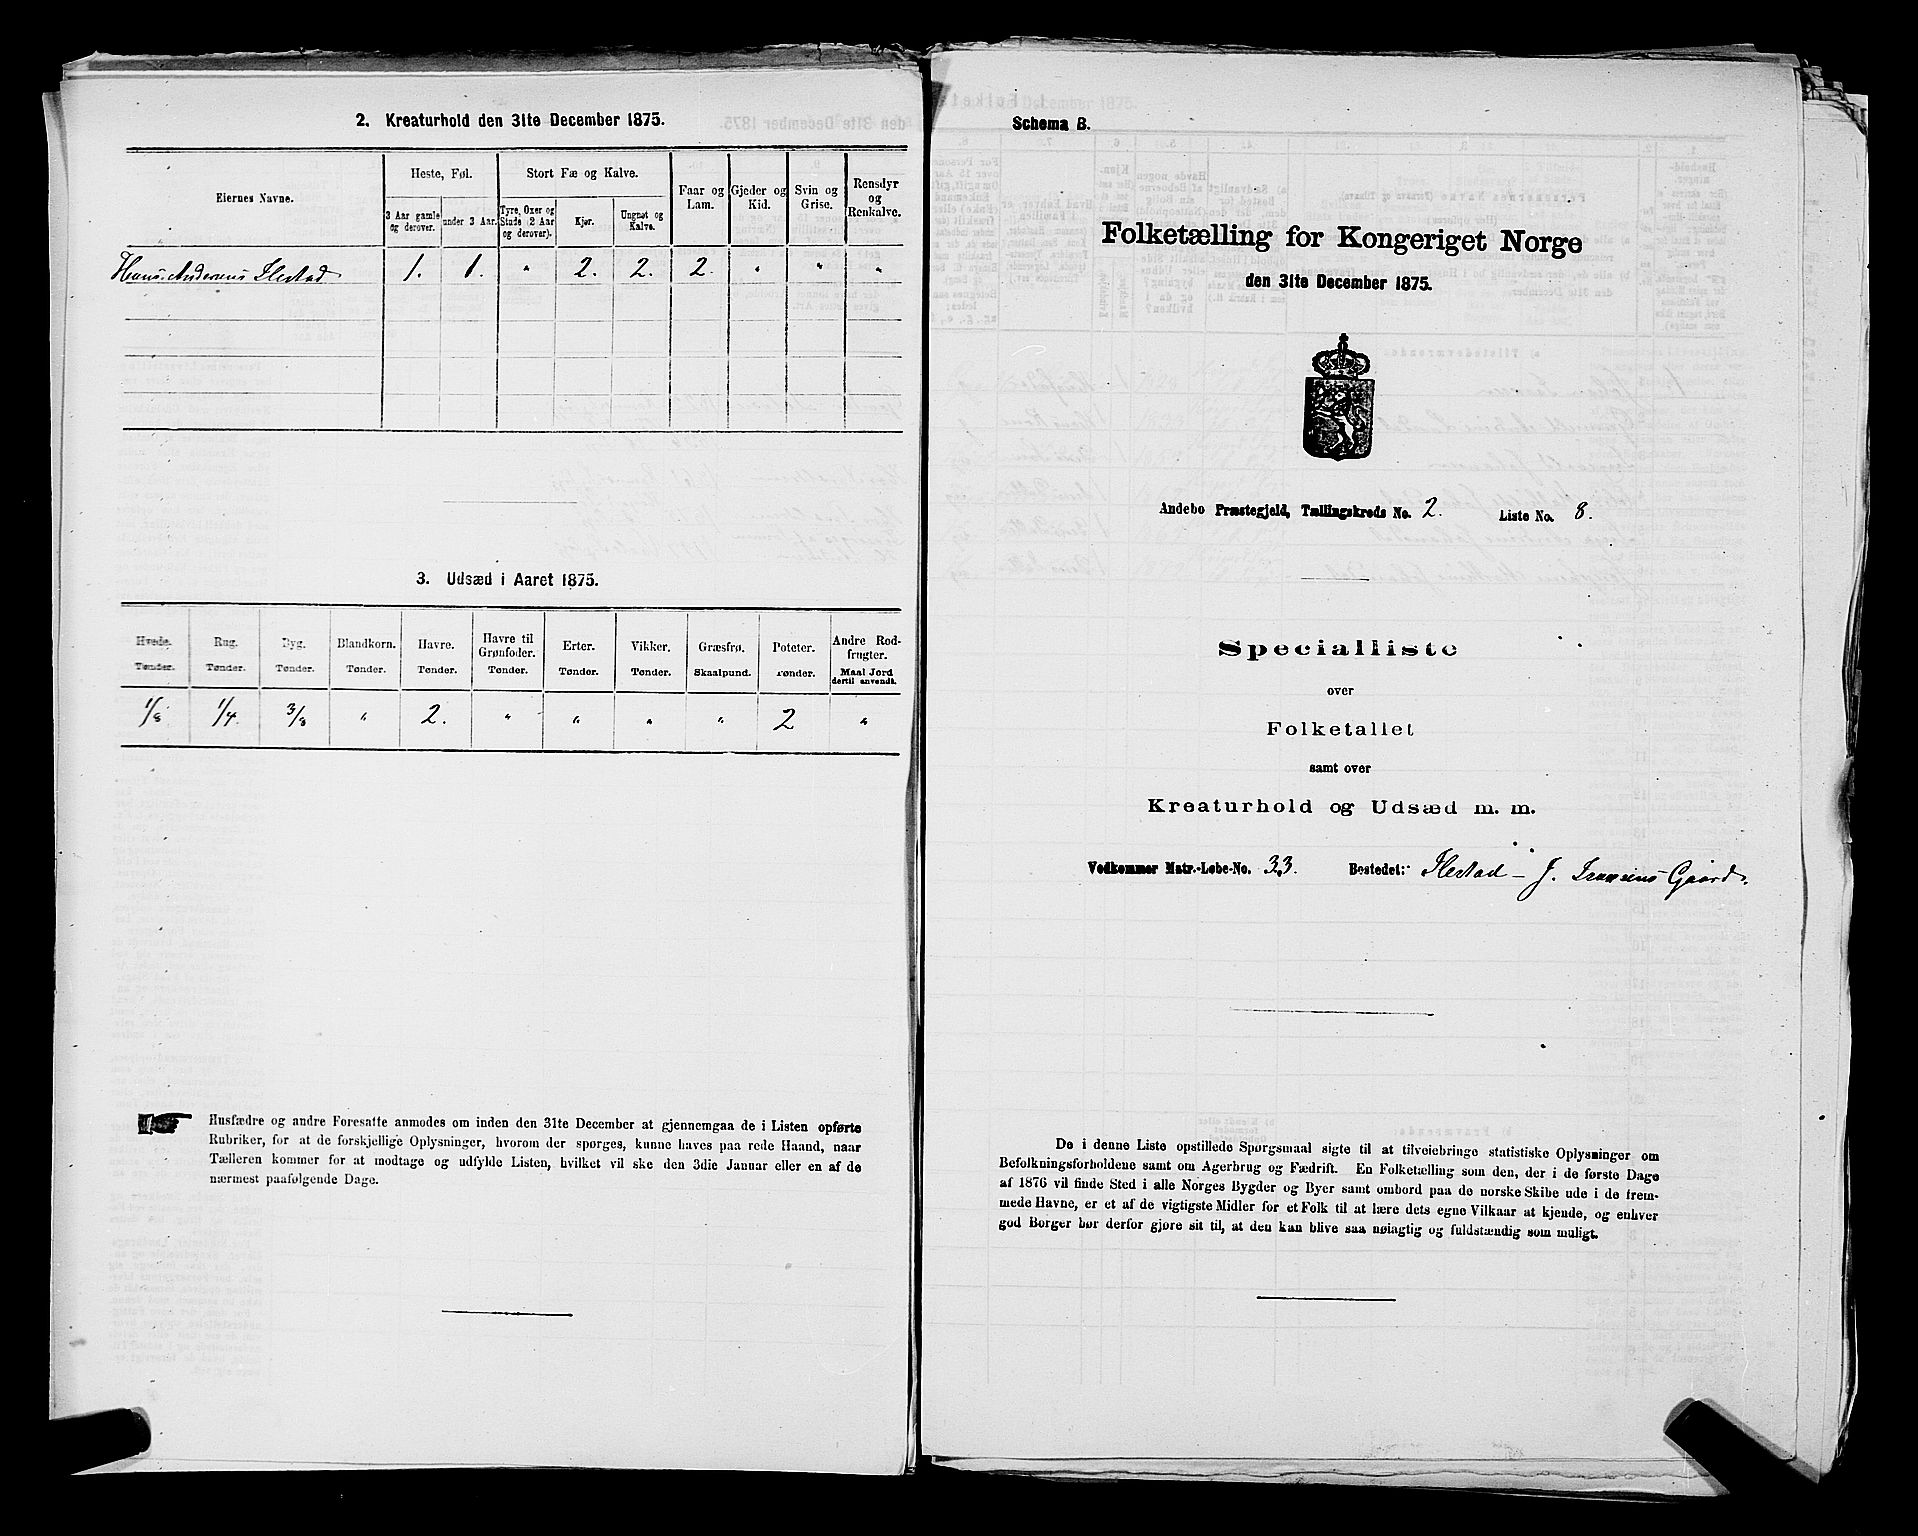 2. Kreaturhold den 31te December 1875.
Eiernes Navne.
Heste, Føl.
Stort Fæ og Kalve.
Faar og Lam.
Gjeder og Kid.
Svin og Grise.
Rensdyr og Renkalve.
3 Aar gamle og derover.
under 3 Aar.
Tyre, Oxer og Stude (2 Aar og derover).
Kjør.
Ungnøt og Kalve.
Hans Andersens Ilestad 1. 1. " 2. 2. 2. " " "
3. Udsæd i Aaret 1875.
Hvede. Rug. Byg. Blandkorn. Havre. Havre til Grønfoder. Erter. Vikker. Græsfrø. Poteter. Andre Rodfrugter.
Tønder. Tønder. Tønder. Tønder. Tønder. Tønder. Tønder. Tønder. Skaalpund. Tønder. Maal Jord dertil anvendt.
1/8 1/4 3/8 " 2. " " " " 2 "
Husfædre og andre Foresatte anmodes om inden den 31te December at gjennemgaa de i Listen opførte
Rubriker, for at de forskjellige Oplysninger, hvorom der spørges, kunne haves paa rede Haand, naar
Tælleren kommer for at modtage og udfylde Listen, hvilket vil ske den 3die Januar eller en af de
nærmest paafølgende Dage.
Schema B.
Folketælling for Kongeriget Norge
den 31te December 1875.
Andebo Præstegjeld, Tællingskreds No. 2. Liste No. 8.
Specialliste
over
Folketallet
samt over
Kreaturhold og Udsæd m. m.
Vedkommer Matr.-Løbe-No. 33. Bostedet: Ilestad – J. Iversens Gaard.
De i denne Liste opstillede Spørgsmaal sigte til at tilveiebringe statistiske Oplysninger om
Befolkningsforholdene samt om Agerbrug og Fædrift. En Folketælling som den, der i de første Dage
af 1876 vil finde Sted i alle Norges Bygder og Byer samt ombord paa de norske Skibe ude i de frem-
mede Havne, er et af de vigtigste Midler for et Folk til at lære dets egne Vilkaar at kjende, og enhver
god Borger bør derfor gjøre sit til, at den kan blive saa nøiagtig og fuldstændig som muligt.